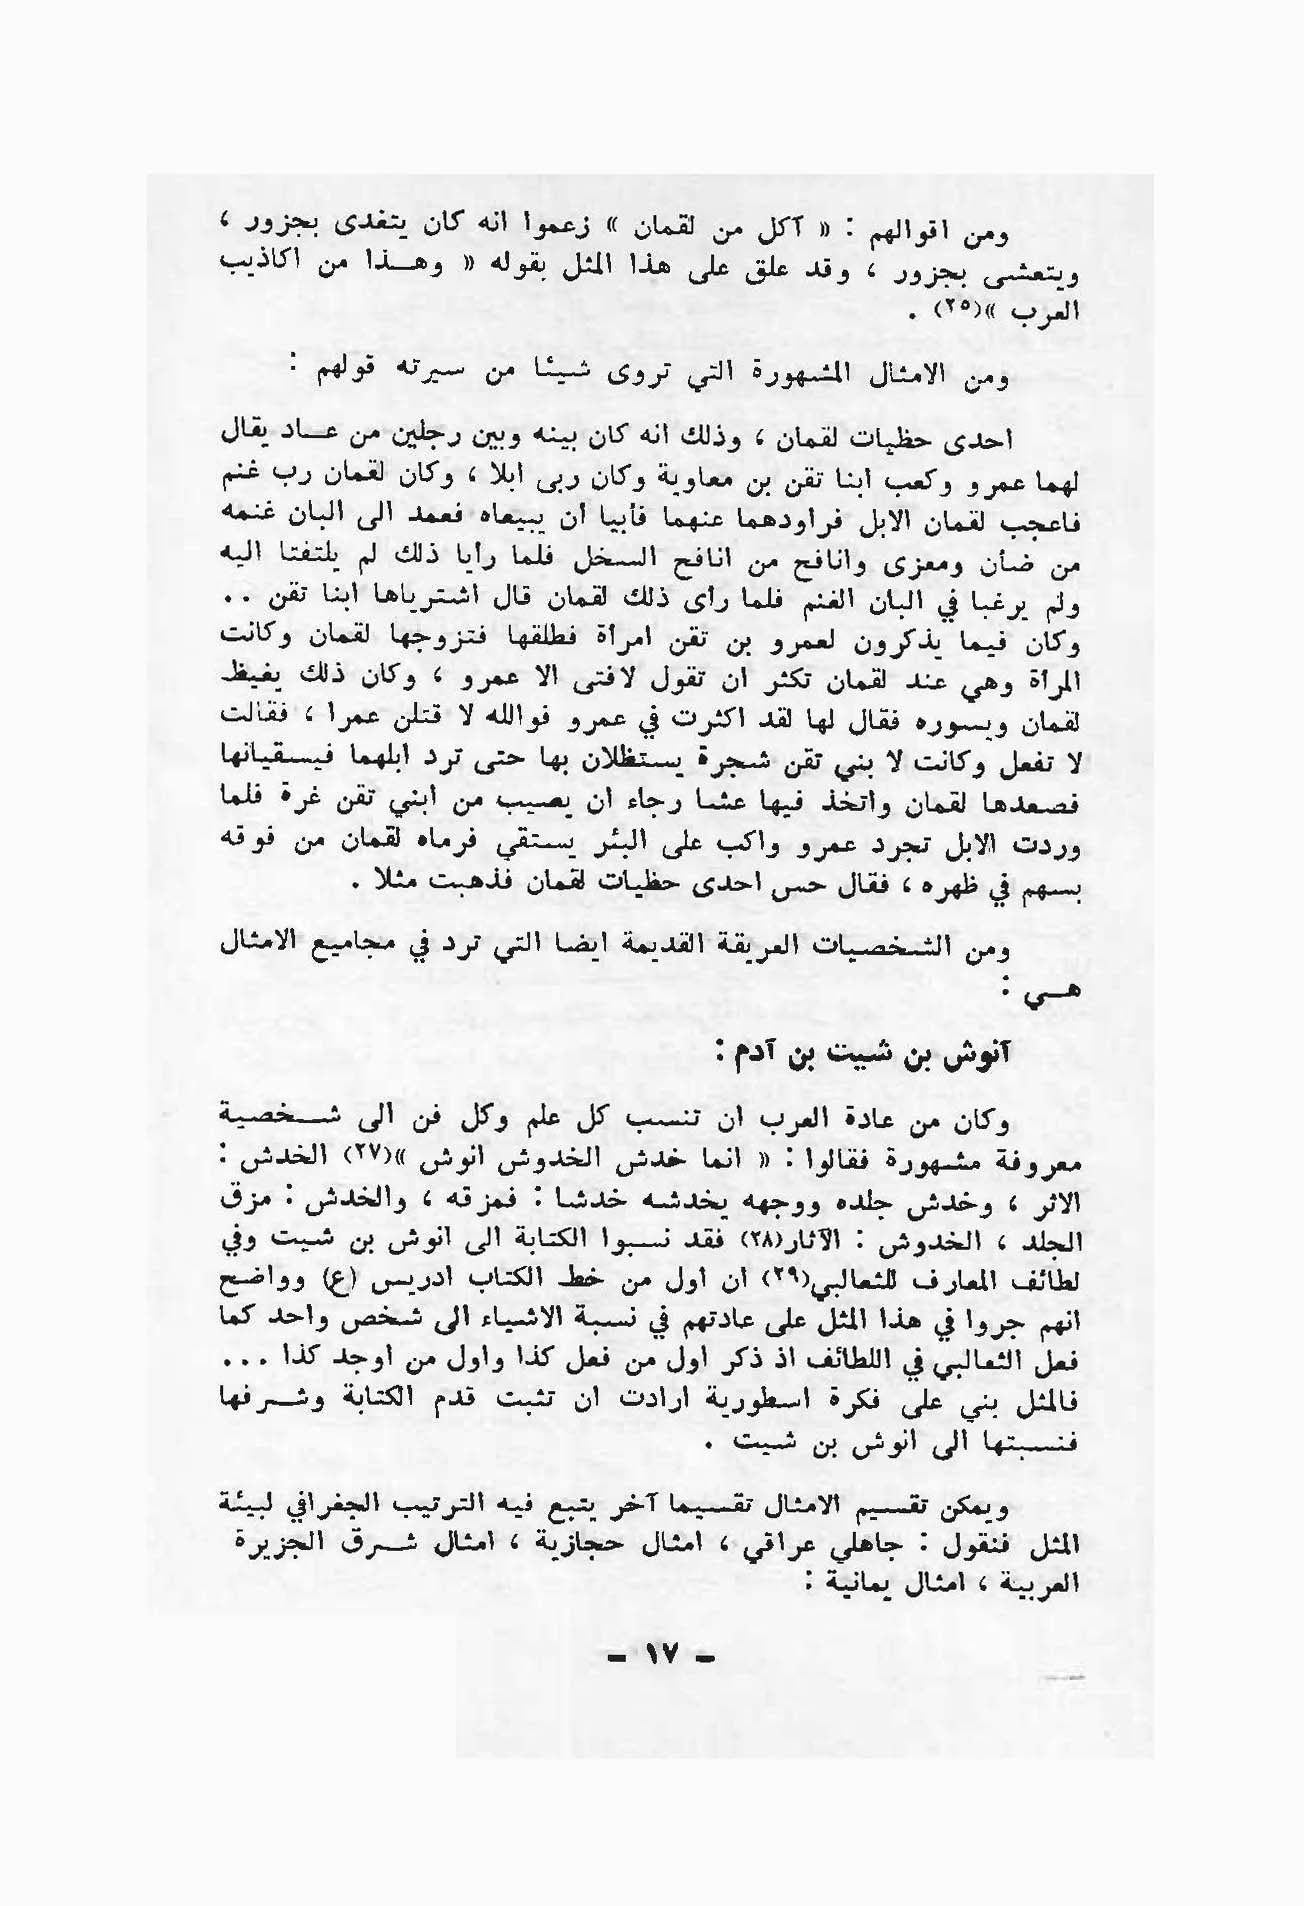 ومن اقوالهم : « آكل من لقمان » زعموا انه كان يتغدى بجزور ،
ويتعشى بجزور ، وقد علق على هذا المثل بقوله « وهـذا من اكاذيب
العرب »(٢٥) .
ومن الامثال المشهورة التي تروى شيئا من سيرته قولهم :
احدى حظيات لقمان ، وذلك انه كان بينه وبين رجلين من عـاد يقال
لهما عمرو وكعب ابنا تقن بن معاوية وكان ربى ابلا ، وكان لقمان رب غنم
فاعجب لقمان الابل فراودهما عنهما فأبيا أن يبيعاه فعمد الى البان غنمه
من ضأن ومعزى وانافح من انافح السخل فلما رأيا ذلك لم يلتفتا اليه
ولم يرغبا في البان الغنم فلما رأى ذلك لقمان قال اشترياها ابنا تقن ..
وكان فيما يذكرون لعمرو بن تقن امرأة فطلقها فتزوجها لقمان وكانت
المرأة وهي عند لقمان تكثر ان تقول لافتى الا عمرو ، وكان ذلك يغيظ
لقمان ويسوره فقال لها لقد اكثرت في عمرو فوالله لا قتلن عمرا ، فقالت
لا تفعل وكانت لا بني تقن شجرة يستظلان بها حتى ترد ابلهما فيسقيانها
فصعدها لقمان واتخذ فيها عشا رجاء ان يصيب من ابني تقن غرة فلما
وردت الابل تجرد عمرو واكب على البئر يستقي فرماه لقمان من فوقه
بسهم في ظهره ، فقال حس احدى حظيات لقمان فذهبت مثلا .
ومن الشخصيات العريقة القديمة ايضا التي ترد في مجاميع الامثال
هـي :
آنوش بن شيت بن آدم :
وكان من عادة العرب ان تنسب كل علم وكل فن الى شـخصية
معروفة مشهورة فقالوا : « انما خدش الخدوش انوش »(٢٧) الخدش :
الاثر ، وخدش جلده ووجهه يخدشه خدشا : فمزقه ، والخدش : مزق
الجلد ، الخدوش : الآثار(٢٨) فقد نسبوا الكتابة الى انوش بن شيت وفي
لطائف المعارف للثعالبي(٢٩) ان اول من خط الكتاب ادريس (ع) وواضح
انهم جروا في هذا المثل على عادتهم في نسبة الاشياء الى شخص واحد كما
فعل الثعالبي في اللطائف اذ ذكر اول من فعل كذا واول من اوجد كذا ...
فالمثل بني على فكرة اسطورية ارادت ان تثبت قدم الكتابة وشـرفها
فنسبتها الى انوش بن شيت .
ويمكن تقسيم الامثال تقسيما آخر يتبع فيه الترتيب الجغرافي لبيئة
المثل فنقول : جاهلي عراقي ، امثال حجازية ، امثال شـرق الجزيرة
العربية ، امثال يمانية :
- ١٧ -